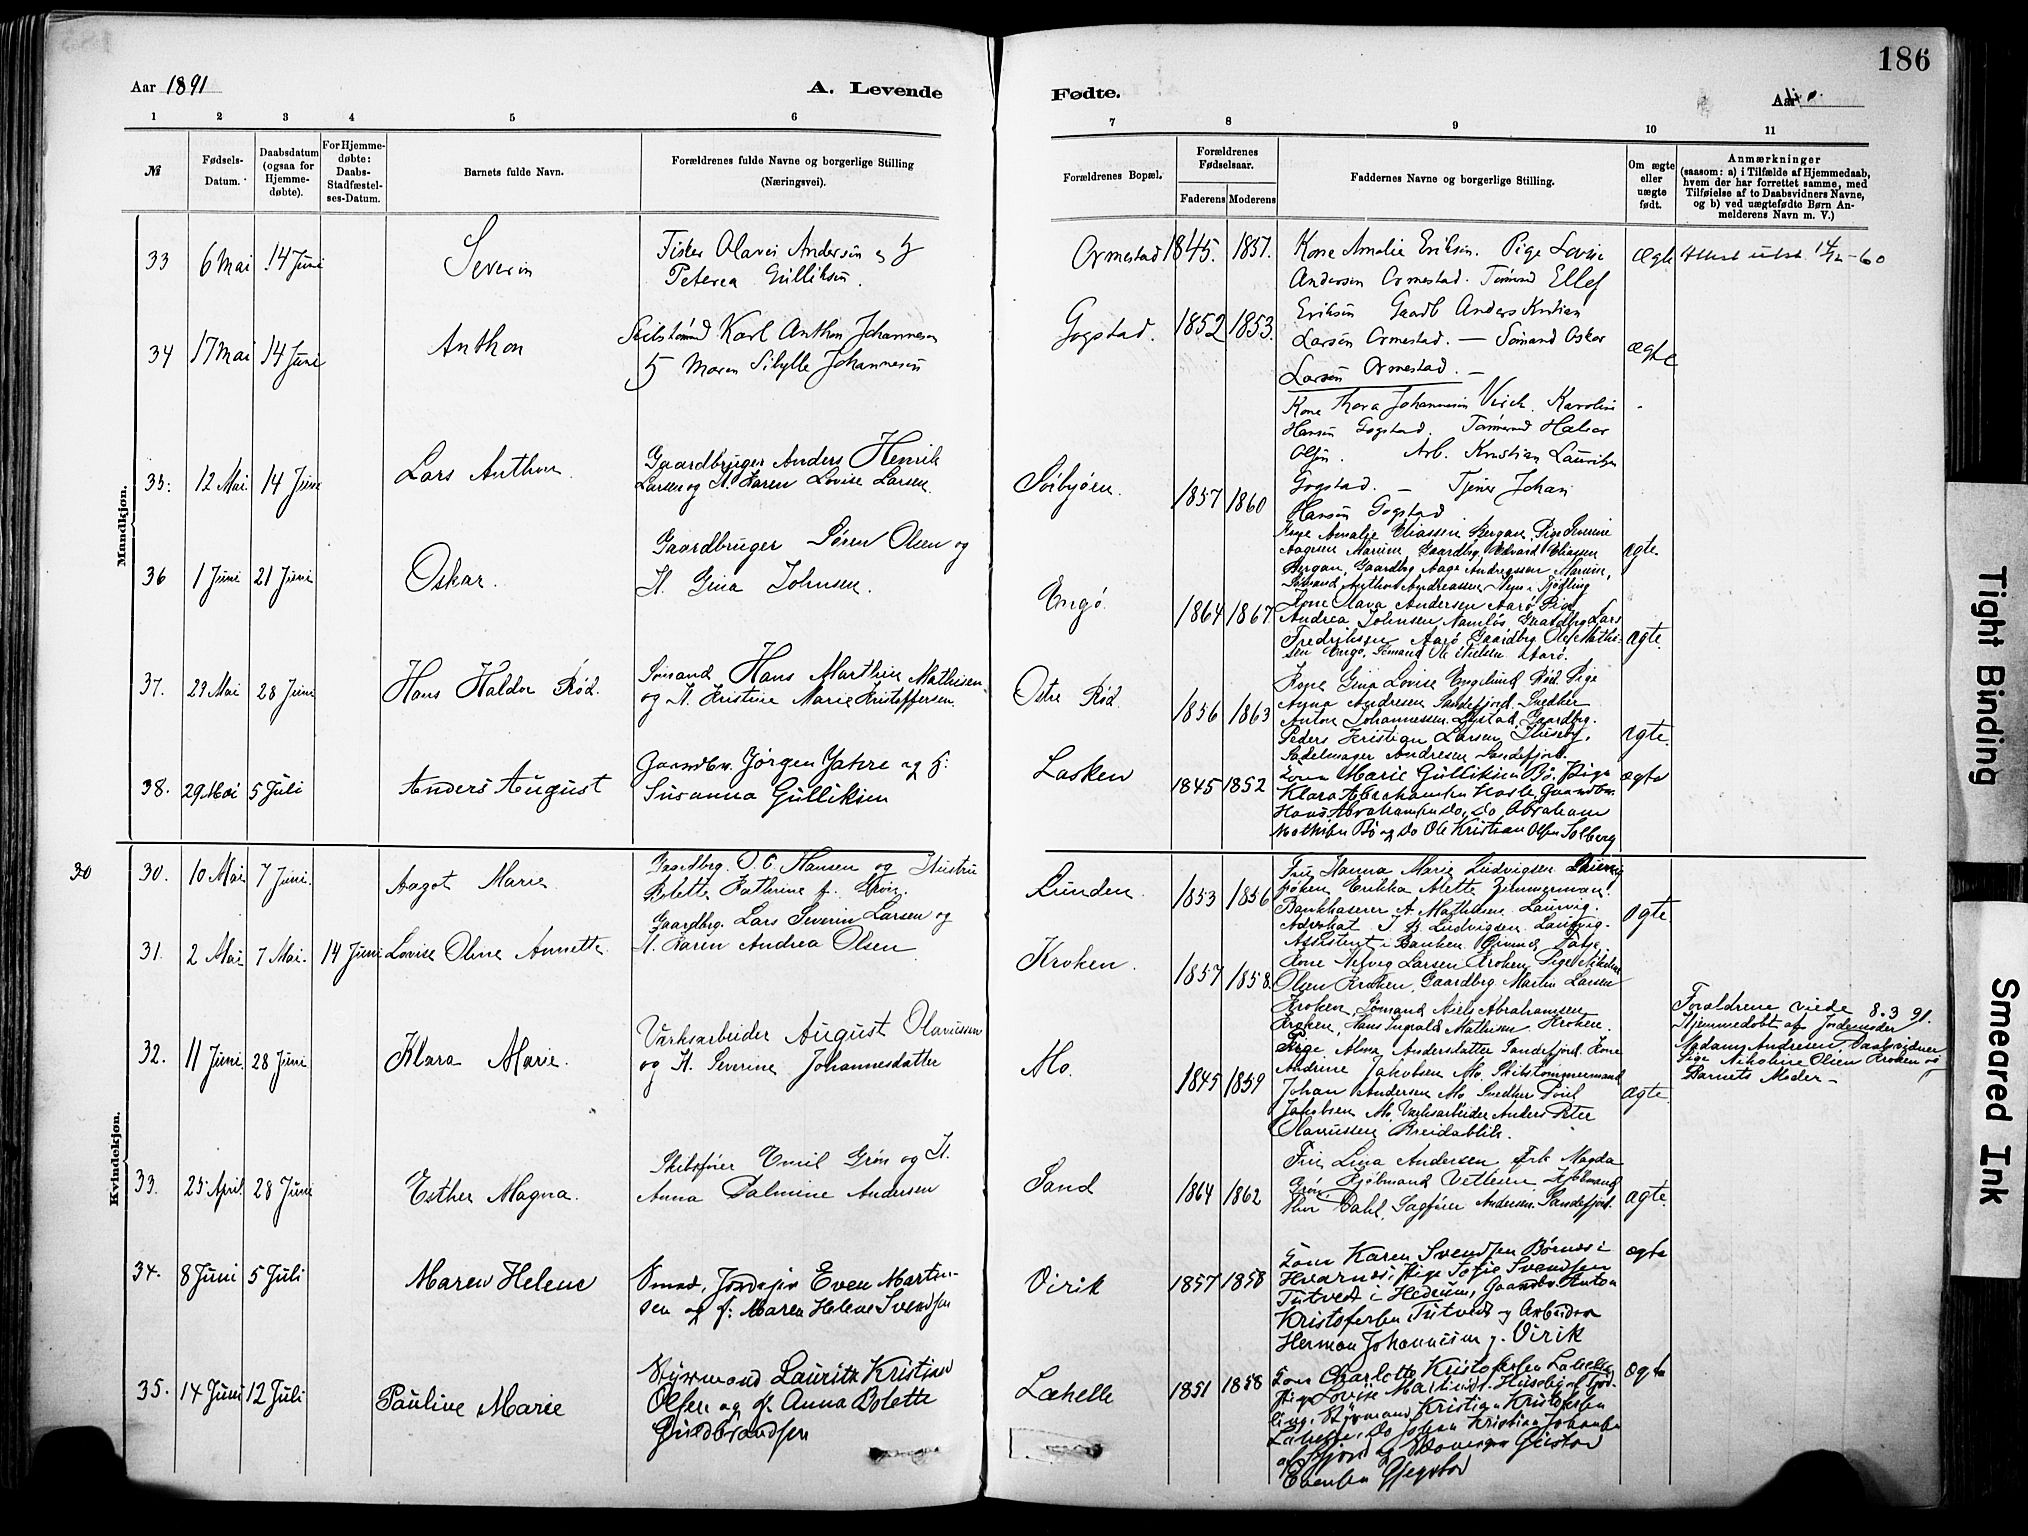 186
Aar 1891
A. Levende
Fødte.
Aar
1 2 3 4 5 6 7 8 9 10 11
№
Fødsels-
Datum.
Daabsdatum
(ogsaa for
Hjemme-
døbte).
For Hjemme-
døbte:
Daabs-
Stadfæstel-
ses-Datum.
Barnets fulde Navn.
Forældrenes fulde Navne og borgerlige Stilling
(Næringsvei).
Forældrenes Bopæl.
Forældrenes
Fødselsaar.
Faderens Moderens
Faddernes Navne og borgerlige Stilling.
Om ægte
eller
uægte
født.
Anmærkninger
(saasom: a) i Tilfælde af Hjemmedaab,
hvem der har forrettet samme, med
Tilføielse af to Daabsvidners Navne,
og b) ved uægtefødte Børn An-
melderens Navn m. V.)
Mandkjøn.
33 6 Mai 14 Juni Severin
Fisker Olaves Andersen og H
Peterea Gulliksen.
Ormestad 1845. 1857.
Kone Amalie Eriksen. Pige Lovise
Andersen Ormestad. Tømmd Ellef
Eriksen Gaardb Anders Kristian
Larsen Ormestad. — Sømand Oskar
Larsen Ormestad. —
Ægte
Attest utst. 14/12-60
34 17 Mai 14 Juni Anthon
Karl Anthon Johannesen
H Maren Sibylle Johannesen
Gogstad. 1852 1853.
Kone Thora Johannesen Virik. Karoline
Hansen Gogstad. Tømmermd Halvor
Olsen. Arb. Kristian Lauritzen
Gogstad. — Tjener Johan
Hansen Gogstad
ægte
35. 12 Mai. 14 Juni Lars Anthon
Gaardbruger Anders Henrik
Larsen og H. Karen Lovise Larsen.
Sörbyöen. 1857 1860
Kone Amalie Eliassen Bergan, Pige Severine
Aagesen Marum, Gaardbrg, Edvard Eliassen
Bergan, Gaardbg Aage Andreassen Marum,
Sømand Anthon Andreassen i Tjødling
ægte
36 1 Juni 21 Juni Oskar.
Gaardbruger Søren Olsen og
H. Gina Johnsen.
Engø. 1864 1867
Kone Olava Andersen Aarø, Pige
Andrea Johnsen Namløs, Gaardbg Lars
Fredriksen Aarø Gaardbg. Olaf Mathi-
sen Engø, Sømand Ole Aarø.
ægte.
37. 29 Mai 28 Juni Hans Haldor Rød.
Sømand Hans Marthin Mathisen
og H. Kristine Marie Kristoffersen.
Østre Rød. 1856 1863
Kone Gina Lovise Engelund Rød Pige
Anna Andresen Sandefjord. Snedker
Anton Johannessen Lystad, Gaardbrg.
Peder Kristian Larsen Huseby,
Sadelmager Andresen Sandefjord.
ægte.
38. 29 Mai 5 Juli Anders August
Gaardbr. Jørgen Jahre og H:
Susanna Gulliksen
Lasken 1845 1852
Kone Marie Gulliksen Bø. Pige
Klara Abrahamsen Hasle, Gaardbr.
Hans Abrahamsen do, do Abraham
Mathisen Bø og do Ole Kristian Olsen Solberg
ægte
Kvindekjøn.
30
30. 10 Mai 7 Juni. Aagot Marie
Gaardbrg. O. C. Hansen og Hustru
Bolette Kathrine f.
Lunden. 1853 1856
Fru Hanna Marie Ludvigsen Laurvig
frøken Erikka Alette Zimmerman.
Bankkaserer A. Mathisen. Laurvig.
Advokat J. B. Ludvigsen. Laurvig-
Assistent i Banken Eivind Fabje.
ægte
31. 2 Mai 7 Mai. 14 Juni Lovise Oline Annette
Gaardbg. Lars Severin Larsen og
H. Karen Andrea Olsen
Kroken. 1857 1858.
Kone Helvig Larsen Kroken, Pige Nikoline
Olsen Kroken, Gaardbrg Martin Larsen
Kroken, Sømand Niels Abrahamsen
Kroken, Hans Ingvald Mathisen Kroken.
Forældrene viede 8.3 91.
Hjemmedøbt af Jordemoder
Madam Andresen Daabsvidner
Pige Nikoline Olsen Kroken og
Barnets Moder —
32. 11 Juni. 28 Juni Klara Marie.
Værksarbeider August Olavussen
og H. Severine Johannesdatter
Mo. 1845 1859
Pige Alma Andersdatter Sandefjord. Kone
Andrine Jakobsen Mo. Skibstømmermand
Johan Andersen Mo Snedker Poul
Jakobsen Mo, Værksarbeider Anders Peter
Olavussen Breidablik.
ægte.
33. 25 April. 28 Juni Esther Magna.
Skibsfører Emil Grøn og H.
Anna Palmine Andersen
Sand 1864 1862
Fru Lina Andersen Frk Magda
Grøn, Kjøbmand Vettesen, Kjøbmand
Thor Dahl, Sagfører Andersen. Sandefjord.
ægte.
34. 8 Juni 5 Juli Maren Helene
Smed, Jordejer Even Marten-
sen og H: Maren Helene Svendsen
Virik 1857 1858
Kone Karen Svendsen Børnes i
Hvarnes. Pige Sofie Svendsen
Tutvedt i Hedrum, Gaardbr. Anton
Kristofersen Tutvedt og Arbeider
Herman Johannesen g. Virik
ægte
35. 14 Juni 12 Juli Pauline Marie
Styrmand Lauritz Kristian
Olsen og H. Anna Bolette
Guldbrandsen
Lahelle 1851 1858
Kone Charlotte Kristofersen Lahelle,
Pige Lovise Martinsd. Huseby af Tjød-
ling, Styrmand Kristian Kristofersen
Lahelle, do Johan Kristian Johansen
af og Gustav
Evensen Gjegstad
ægte
Tight Binding
Smeared Ink